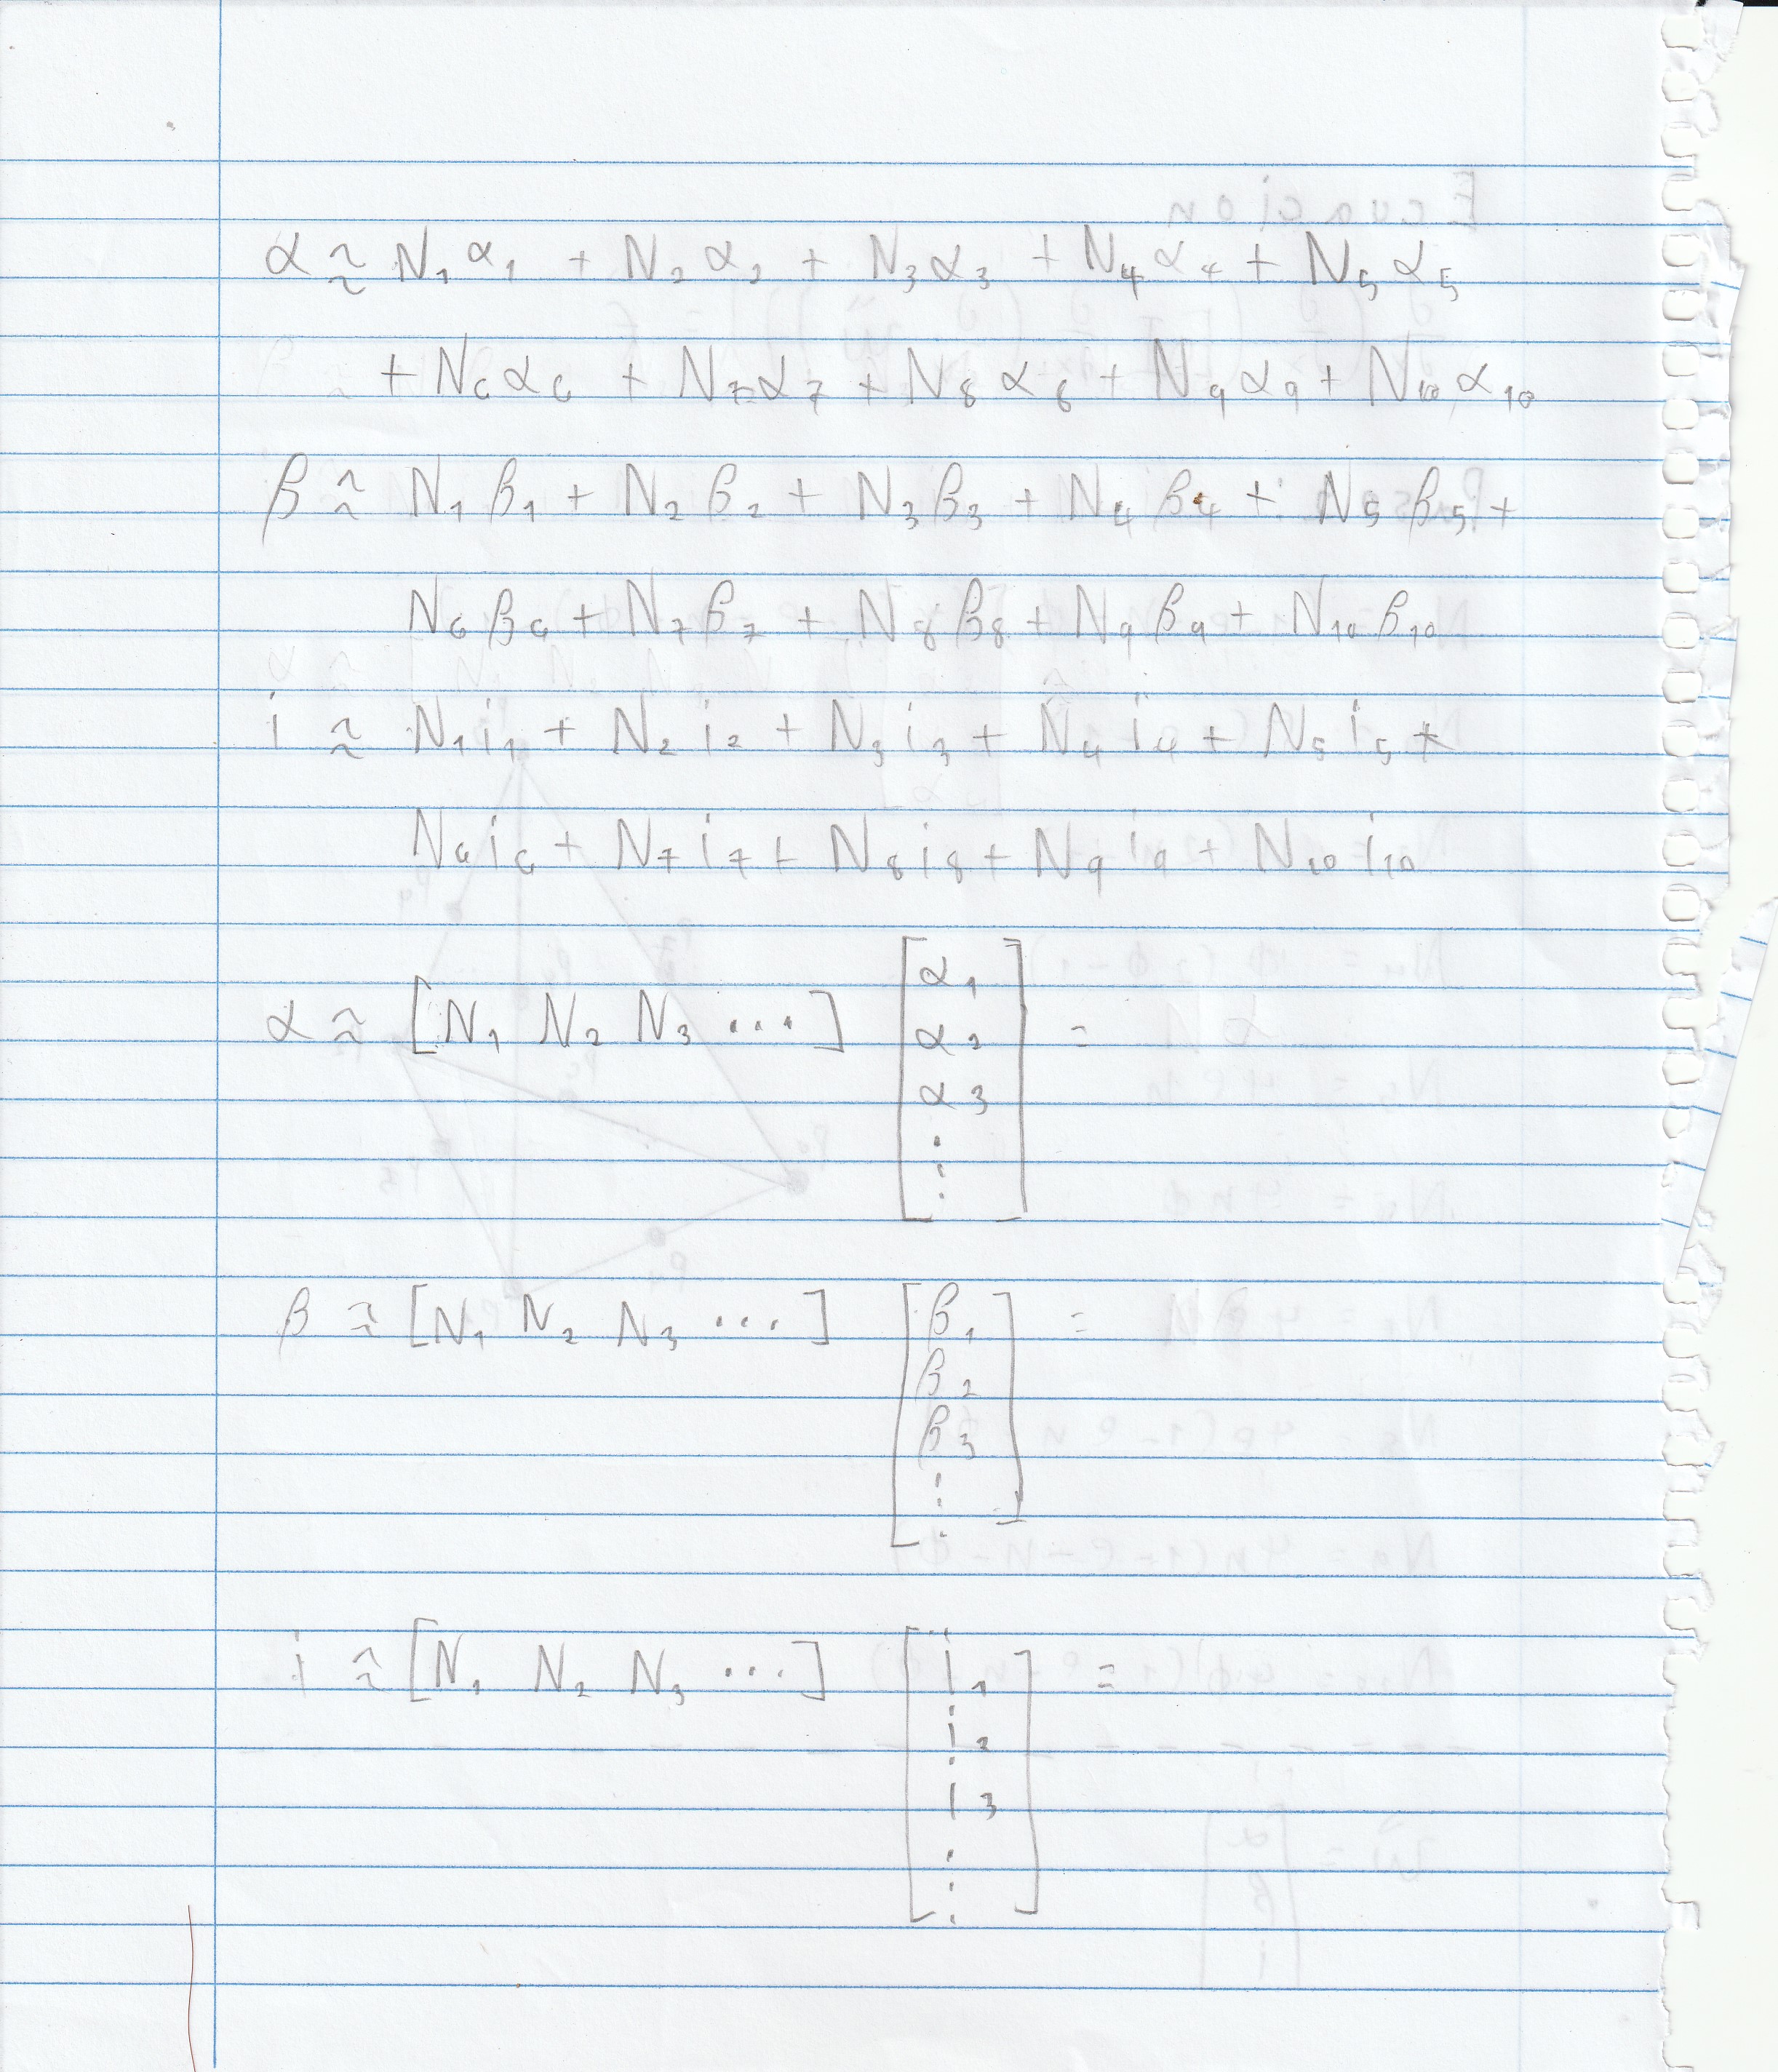 α ≈ N₁α₁ + N₂α₂ + N₃α₃ + N₄α₄ + N₅α₅
+ N₆α₆ + N₇α₇ + N₈α₈ + N₉α₉ + N₁₀α₁₀
β ≈ N₁β₁ + N₂β₂ + N₃β₃ + N₄β₄ + N₅β₅ +
N₆β₆ + N₇β₇ + N₈β₈ + N₉β₉ + N₁₀β₁₀
i ≈ N₁i₁ + N₂i₂ + N₃i₃ + N₄i₄ + N₅i₅ +
N₆i₆ + N₇i₇ + N₈i₈ + N₉i₉ + N₁₀i₁₀
α ≈ [N₁ N₂ N₃ ...] [α₁ α₂ α₃ ⋮] =
β ≈ [N₁ N₂ N₃ ...] [β₁ β₂ β₃ ⋮] =
i ≈ [N₁ N₂ N₃ ...] [i₁ i₂ i₃ ⋮] =